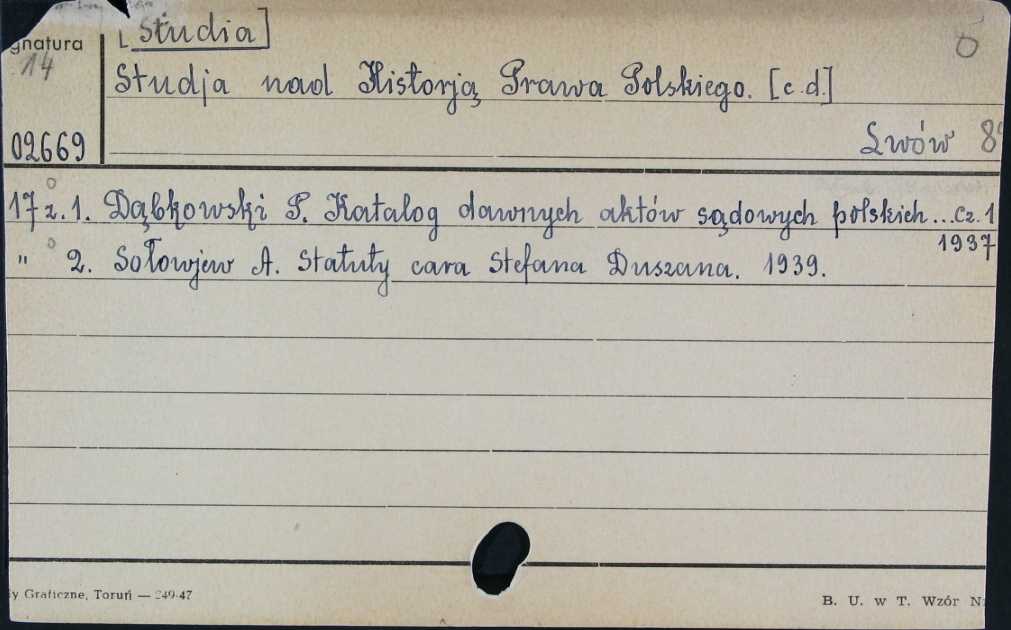 [Studia]
gnatura
14
Studja nad Historją Prawa Polskiego. [c.d.]
02669
Lwów 8°
17 z. 1. Dąbkowski P. Katalog dawnych aktów sądowych polskich... Cz. 1
1937
" 2. Sołowjew A. Statuty cara Stefana Duszana. 1939.
y Graficzne, Toruń — 249-47
B. U. w T. Wzór N